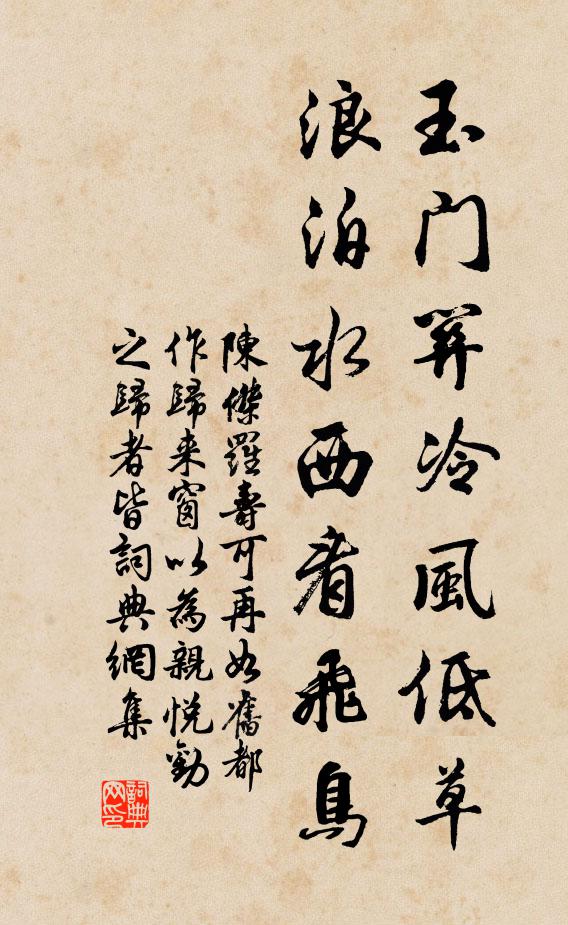 玉门羿冷風低草
浪泊水西看飛鳥
陳傑羅壽可再如舊都
作歸来窗以為親悅勸
之歸者皆詞典網集
詞典
网印